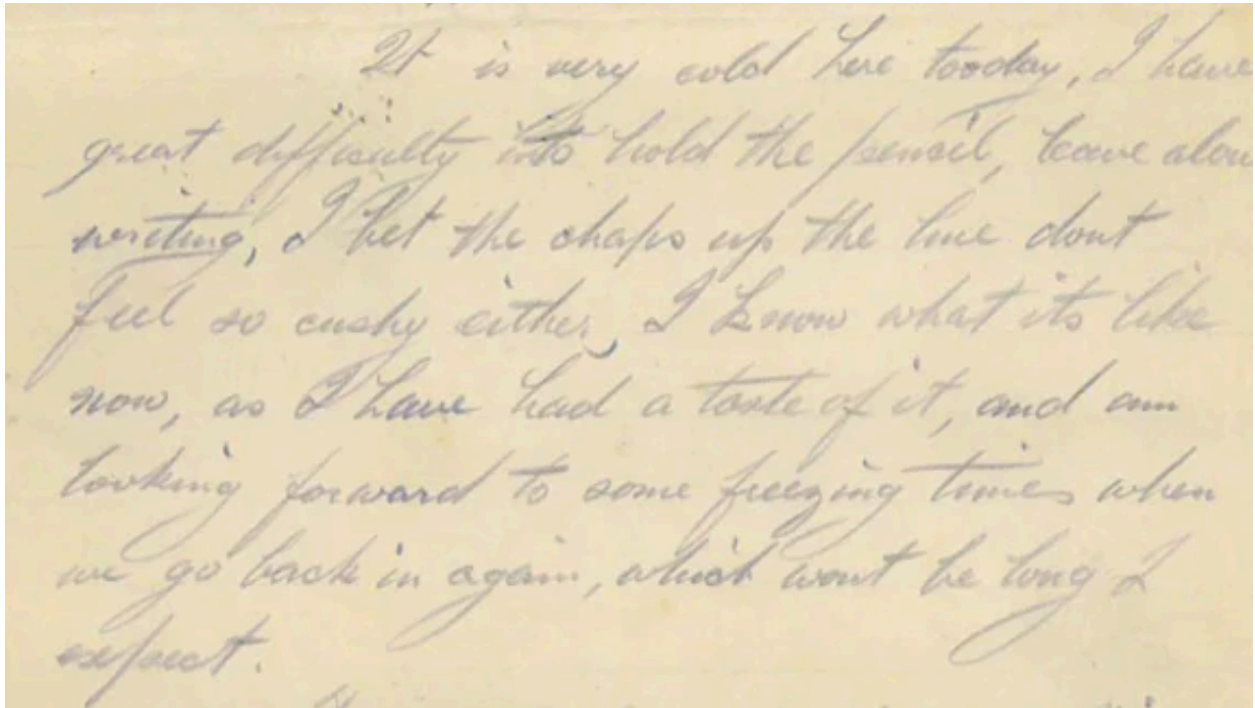 It is very cold here tooday, I have
great difficulty to hold the pencil, leave alon
writing, I bet the chaps up the line dont
feel so cushy either, I know what its like
now, as I have had a taste of it, and am
looking forward to some freezing times when
we go back in again, which wont be long I
expect.